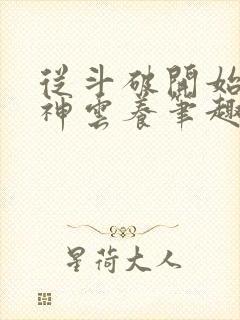 從斗破開始
神雲養筆趣
星荷大人